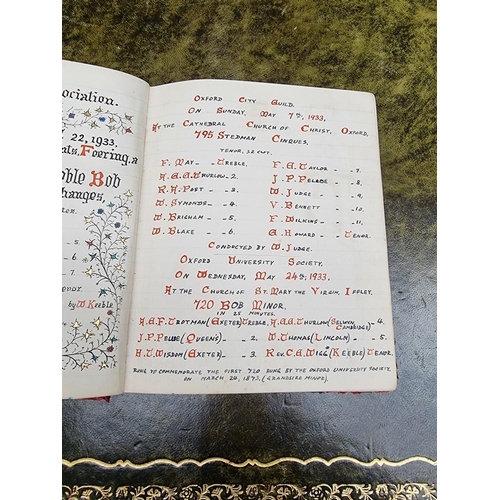 ociation.
22, 1933.
als, Feering, a
ble Bob
hanges,
by W. Keeble
Oxford City Guild.
On Sunday, May 7th, 1933.
At the Cathedral Church of Christ, Oxford,
795 Stedman Cinques,
Tenor, 32 cwt.
F. May -- Treble. F. G. Taylor -- 7.
A.G.G. Thurlow. 2 J. P. Peloe -- 8.
R. A. Post -- 3. W. Judge -- 9.
W. Symonds -- 4. V. Bennett -- 10.
W. Brigham -- 5. F. Wilkins -- 11.
W. Blake -- 6. G. Howard -- Tenor.
Conducted by W. Judge.
Oxford University Society.
On Wednesday, May 24th, 1933.
At the Church of St. Mary the Virgin, Iffley.
720 Bob Minor.
in 25 minutes.
A.G.F. Trotman (Exeter) Treble. A.G.G. Thurlow (Selwyn, Cambridge) - 4.
J. P. Peloe (Queens) -- 2. W. Thomas (Lincoln) -- 5.
H. T. Wisdom (Exeter) -- 3. Rev. C. E. Wigg (Keeble) Tenor.
Rung to commemorate the first 720 rung by the Oxford University Society,
on March 24, 1873. (Grandsire Minor).